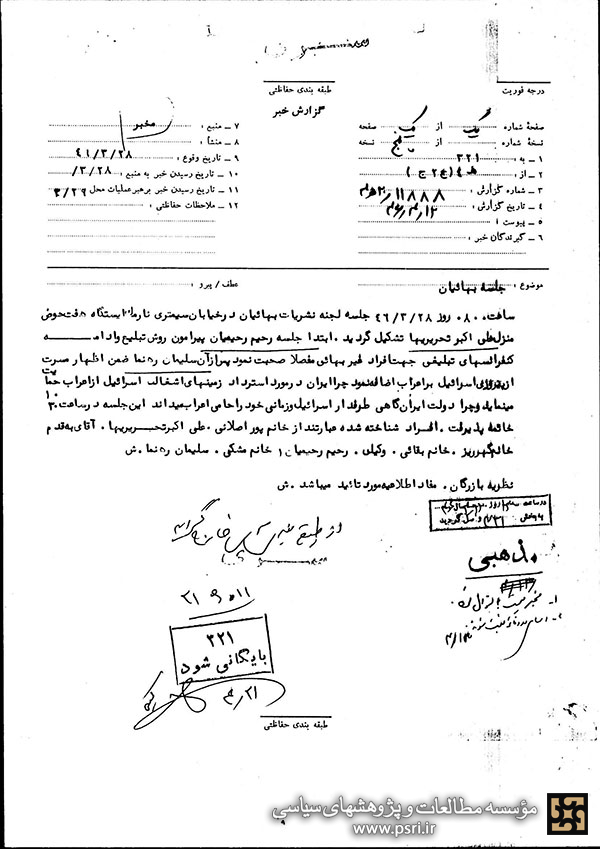 درجه فوریت
طبقه بندی حفاظتی
گزارش خبر
صفحهٔ شماره یک از یک صفحه
نسخهٔ شماره از پنج نسخه
۱ ـ به : ۳۲۱
۲ ـ از :
۳ ـ شماره گزارش :
۴ ـ تاریخ گزارش :
۵ ـ پیوست :
۶ ـ گیرندگان خبر :
۷ ـ منبع : مخبر
۸ ـ منشأ :
۹ ـ تاریخ وقوع : ۴۶/۳/۲۸
۱۰ ـ تاریخ رسیدن خبر به منبع : ۳/۲۸/
۱۱ ـ تاریخ رسیدن خبر برهبر عملیات محل ۳/۲۹
۱۲ ـ ملاحظات حفاظتی :
موضوع : جلسه بهائیان
عطف / پیرو :
ساعت ۰۸۰ روز ۴۶/۳/۲۸ جلسه لجنه نشریات بهائیان درخیابان سیمتری نارمک ایستگاه هفت حوض
منزل علی اکبر تحریریها تشکیل گردید ۰ ابتدا جلسه رحیم رحیمیان پیرامون روش تبلیغ وادامه
کنفرانسهای تبلیغی جهت افراد غیر بهائی مفصلا صحبت نمود پس ازآن سلیمان رهنما ضمن اظهار مسرت
ازپیروزی اسرائیل براعراب اضافه نمود چرا ایران درمورد استرداد زمینهای اشغالی اسرائیل ازاعراب حمایت
مینماید وچرا دولت ایران گاهی طرفدار اسرائیل وزمانی خود راحامی اعراب میداند این جلسه درساعت ۱۰۳۰
خاتمه پذیرفت ۰ افراد شناخته شده عبارتند از خانم پور اصلانی ۰ علی اکبرتحریریها ۰ آقای به قدم
خانم گهرریز ۰ خانم بقائی ۰ وکیلی ۰ رحیم رحیمیان ۰ خانم مشکی ۰ سلیمان رهنما ۰ ش
نظریه بازرگان ۰ مفاد اطلاعیه مورد تائید میباشد ۰ ش
مذهبی
۳۲۱
بایگانی شود
۴/۲۱
طبقه بندی حفاظتی
مؤسسه مطالعات و پژوهشهای سیاسی
www.psri.ir